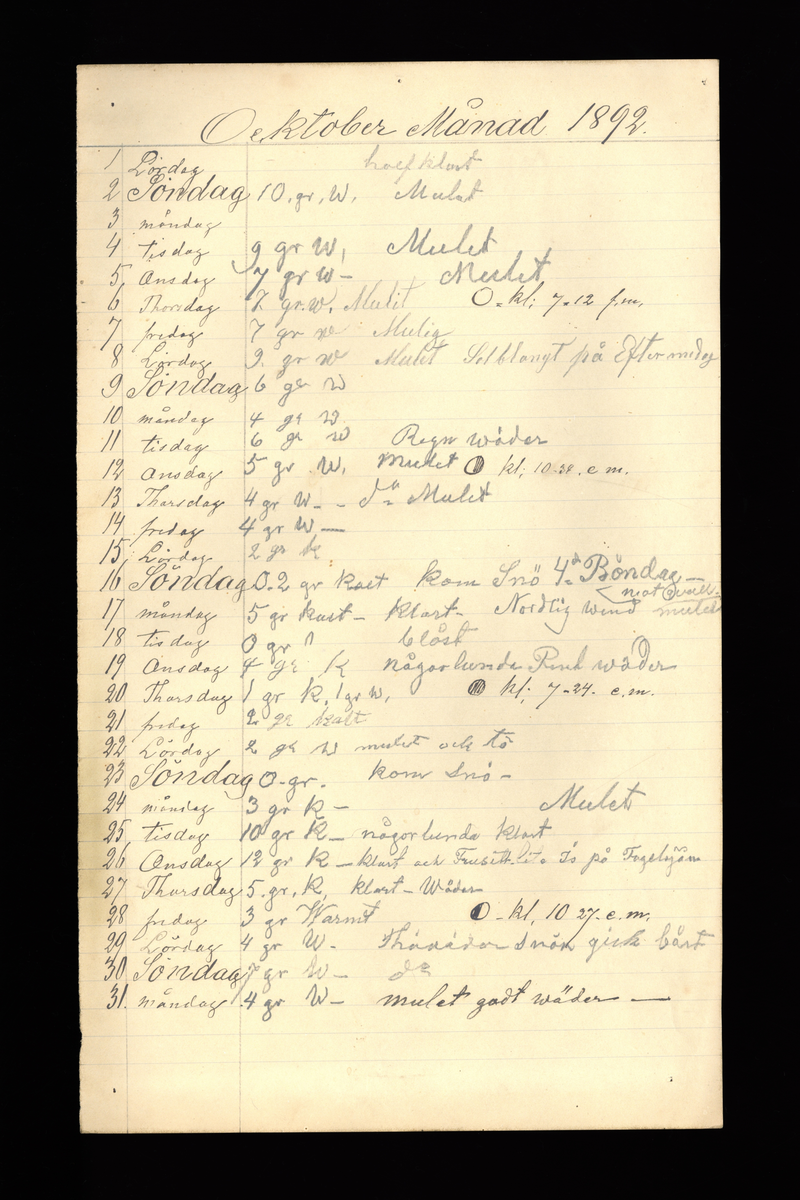 Ocktober Månad 1892.
1 Lördag halfklart
2 Söndag 10. gr. W. Mulet
3 måndag
4 tisdag 9 gr W. Mulet
5 Onsdag 7 gr W – Mulet
6 Thorsdag 7 gr. w. Mulit O - kl; 7-12 f.m.
7 fredag 7 gr w Mulig
8 Lördag 9. gr w Mulet Solblangt på Eftermidag
9 Söndag 6 gr W
10 måndag 4 gr W
11 tisdag 6 gr W Regn wäder
12 Onsdag 5 gr W. Mulet O kl; 10-34. e m.
13 Thorsdag 4 gr W - - do Mulet
14 fredag 4 gr W —
15 Lördag 2 gr k
16 Söndag 0.2 gr kalt kom Snö 4de Böndag –
mot Quell.
17 måndag 5 gr kalt – klart – Nordlig wind mulet
18 tisdag 0 gr blåst
19 Onsdag 4 gr K någorlunda wäder
20 Thorsdag 1 gr K. 1 gr W. O kl; 7-24. e.m.
21 fredag 2 gr kalt
22 Lördag 2 gr W mulet och tö
23 Söndag 0-gr. kom Snö –
24 måndag 3 gr K – Mulet
25 tisdag 10 gr K – någorlunda klart
26 Onsdag 12 gr K – klart och lite Is på
27 Thorsdag 5. gr. K. klart – Wäder
28 fredag 3 gr Warmt O - kl, 10 27. e.m.
29 Lördag 4 gr W – Snön gick bårt
30 Söndag 7 gr W – do
31. måndag 4 gr W – mulet godt wäder —